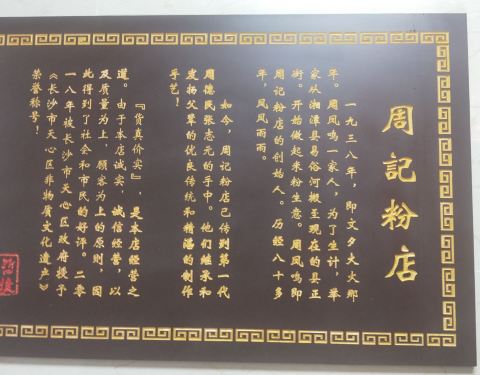 周記粉店
一九三八年,即文夕大火那
年。周凤鸣一家人,为了生计,举
家从湘潭县易俗河搬至现在的县正
街。开始做起米粉生意。周凤鸣即
周记粉店的创始人。历经八十多
年,风风雨雨。
如今,周记粉店已传到第一代
周德民张志元的手中。他们继承和
发扬父辈的优良传统和精湛的制作
手艺!
『货真价实』,是本店经营之
道。由于本店诚实,诚信经营,以
及质量为上,顾客为上的原则,因
此得到了社会和市民的好评。二零
一八年被长沙市天心区政府授予
《长沙市天心区非物质文化遗产》
荣誉称号!